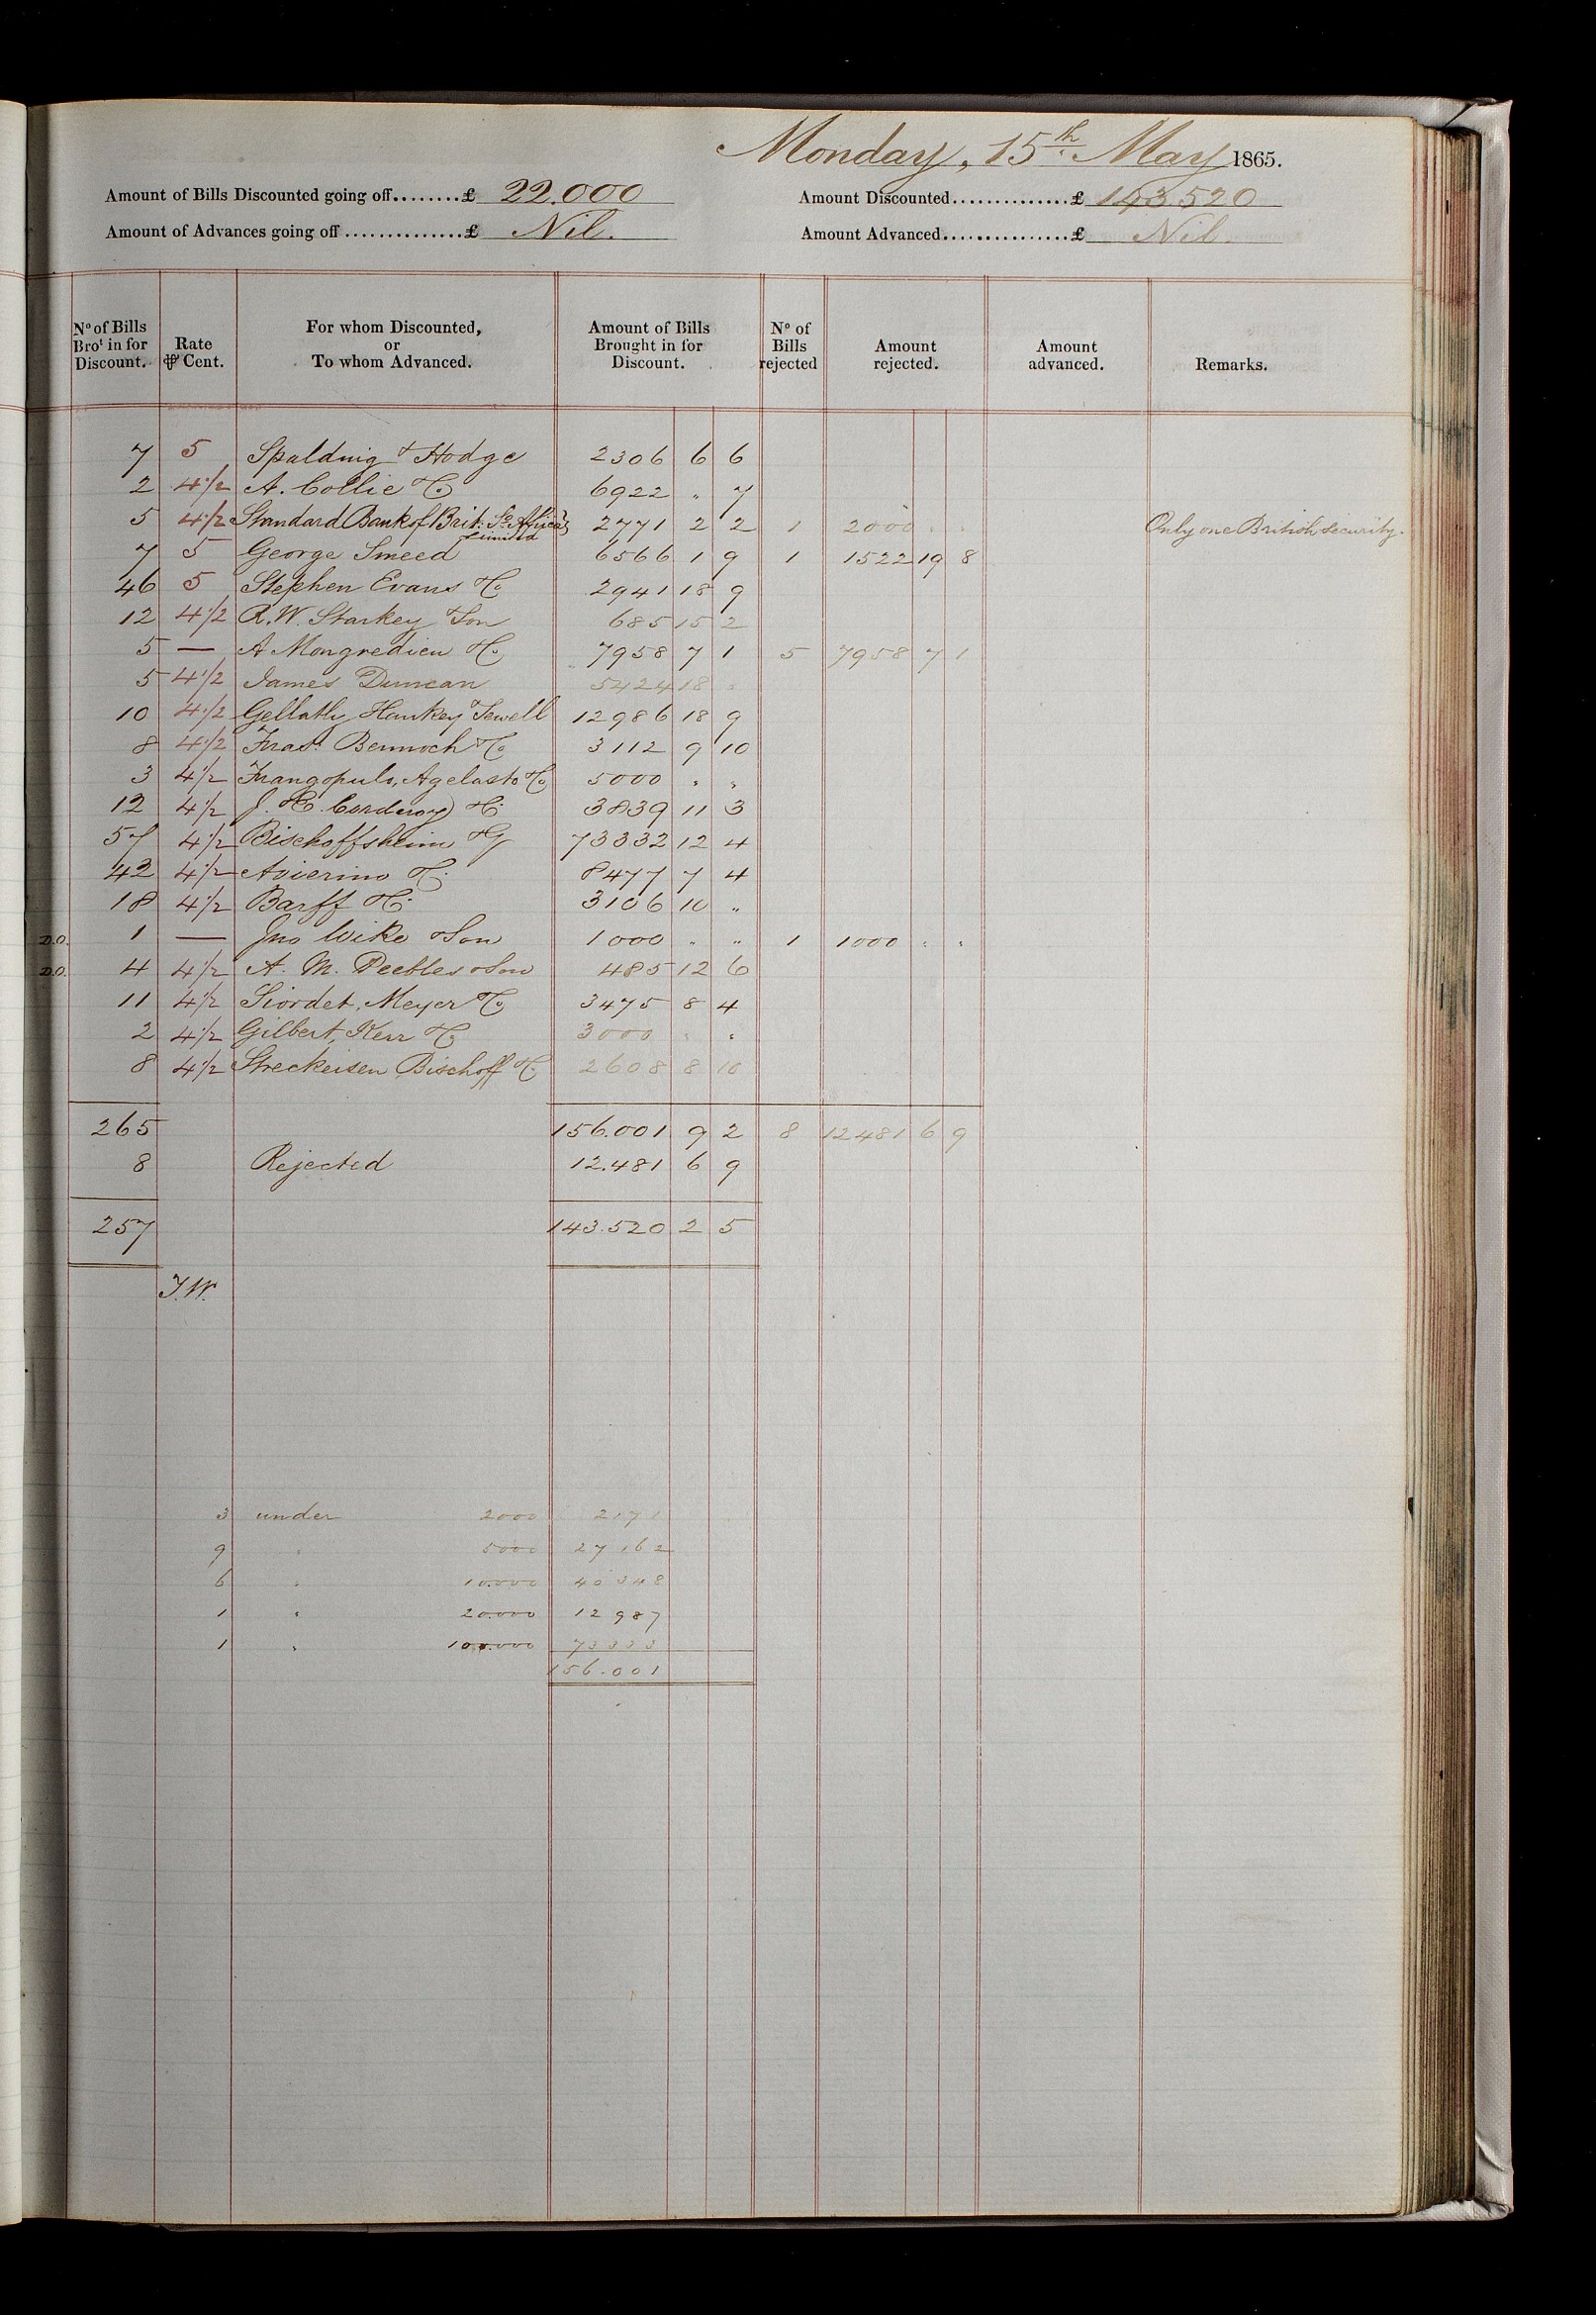 Monday, 15th May 1865.
Amount of Bills Discounted going off........£ 22.000 Amount Discounted..............£ 143.520
Amount of Advances going off ..............£ Nil. Amount Advanced................£ Nil
No of Bills Brot in for Discount. Rate ⅌ Cent. For whom Discounted, or To whom Advanced. Amount of Bills Brought in for Discount. No of Bills rejected Amount rejected. Amount advanced. Remarks.
7 5 Spalding & Hodge 2306 6 6
2 4 1/2 A. Collie & Co 6922 " 7
5 4 1/2 Standard Bank of Brit: So Africa Limited 2771 2 2 1 2000 " " Only one British security.
7 5 George Smeed 6566 1 9 1 1522 19 8
46 5 Stephen Evans & Co 2941 18 9
12 4 1/2 R. W. Starkey & Son 685 15 2
5 — A Mongredieu & Co 7958 7 1 5 7958 7 1
5 4 1/2 James Duncan 5424 18 "
10 4 1/2 Gellatly Hankey Sewell 12986 18 9
8 4 1/2 Fras: Bennoch & Co 3112 9 10
3 4 1/2 Frangopulo, Agelasto & Co 5000 " "
12 4 1/2 J. & C. Corderoy & Co 3839 11 3
57 4 1/2 Bischoffsheim & G 73332 12 4
42 4 1/2 Avierino & Co 8477 7 4
18 4 1/2 Barff & Co 3106 10 "
D.O. 1 — Jno Wike & Son 1000 " " 1 1000 " "
D.O. 4 4 1/2 A. M. Peebles & Son 485 12 6
11 4 1/2 Siordet, Meyer & Co 3475 8 4
2 4 1/2 Gilbert, Kerr & Co 3000 " "
8 4 1/2 Streckeisen Bischoff & Co 2608 8 10
265 156.001 9 2 8 12481 6 9
8 Rejected 12.481 6 9
257 143.520 2 5
T.W.
3 under 2000 2171
9 " 5000 27162
6 " 10.000 40348
1 " 20.000 12987
1 " 100.000 73333
156.001